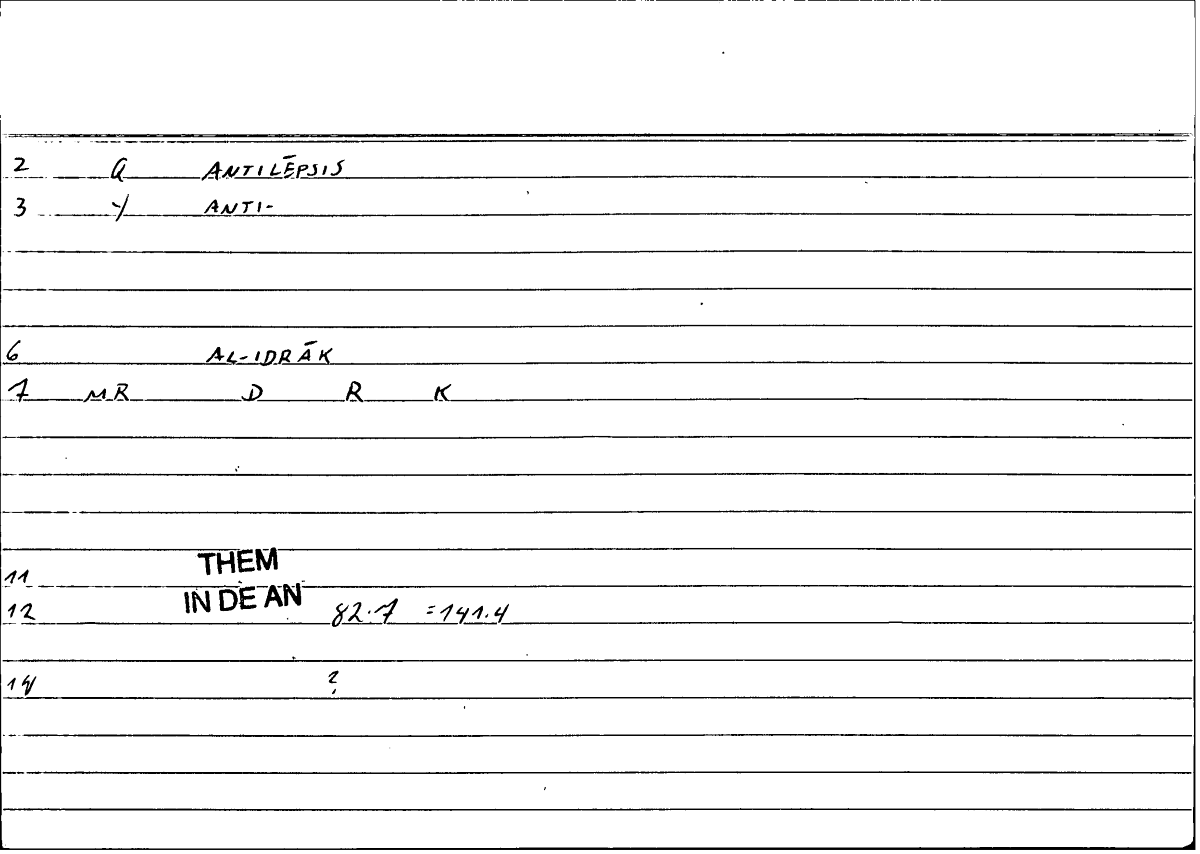 2 Q ANTILĒPSIS
3 Y ANTI-
6 AL-IDRĀK
7 MR D R K
11 THEM
12 IN DE AN 82.7 =141.4
14 ?